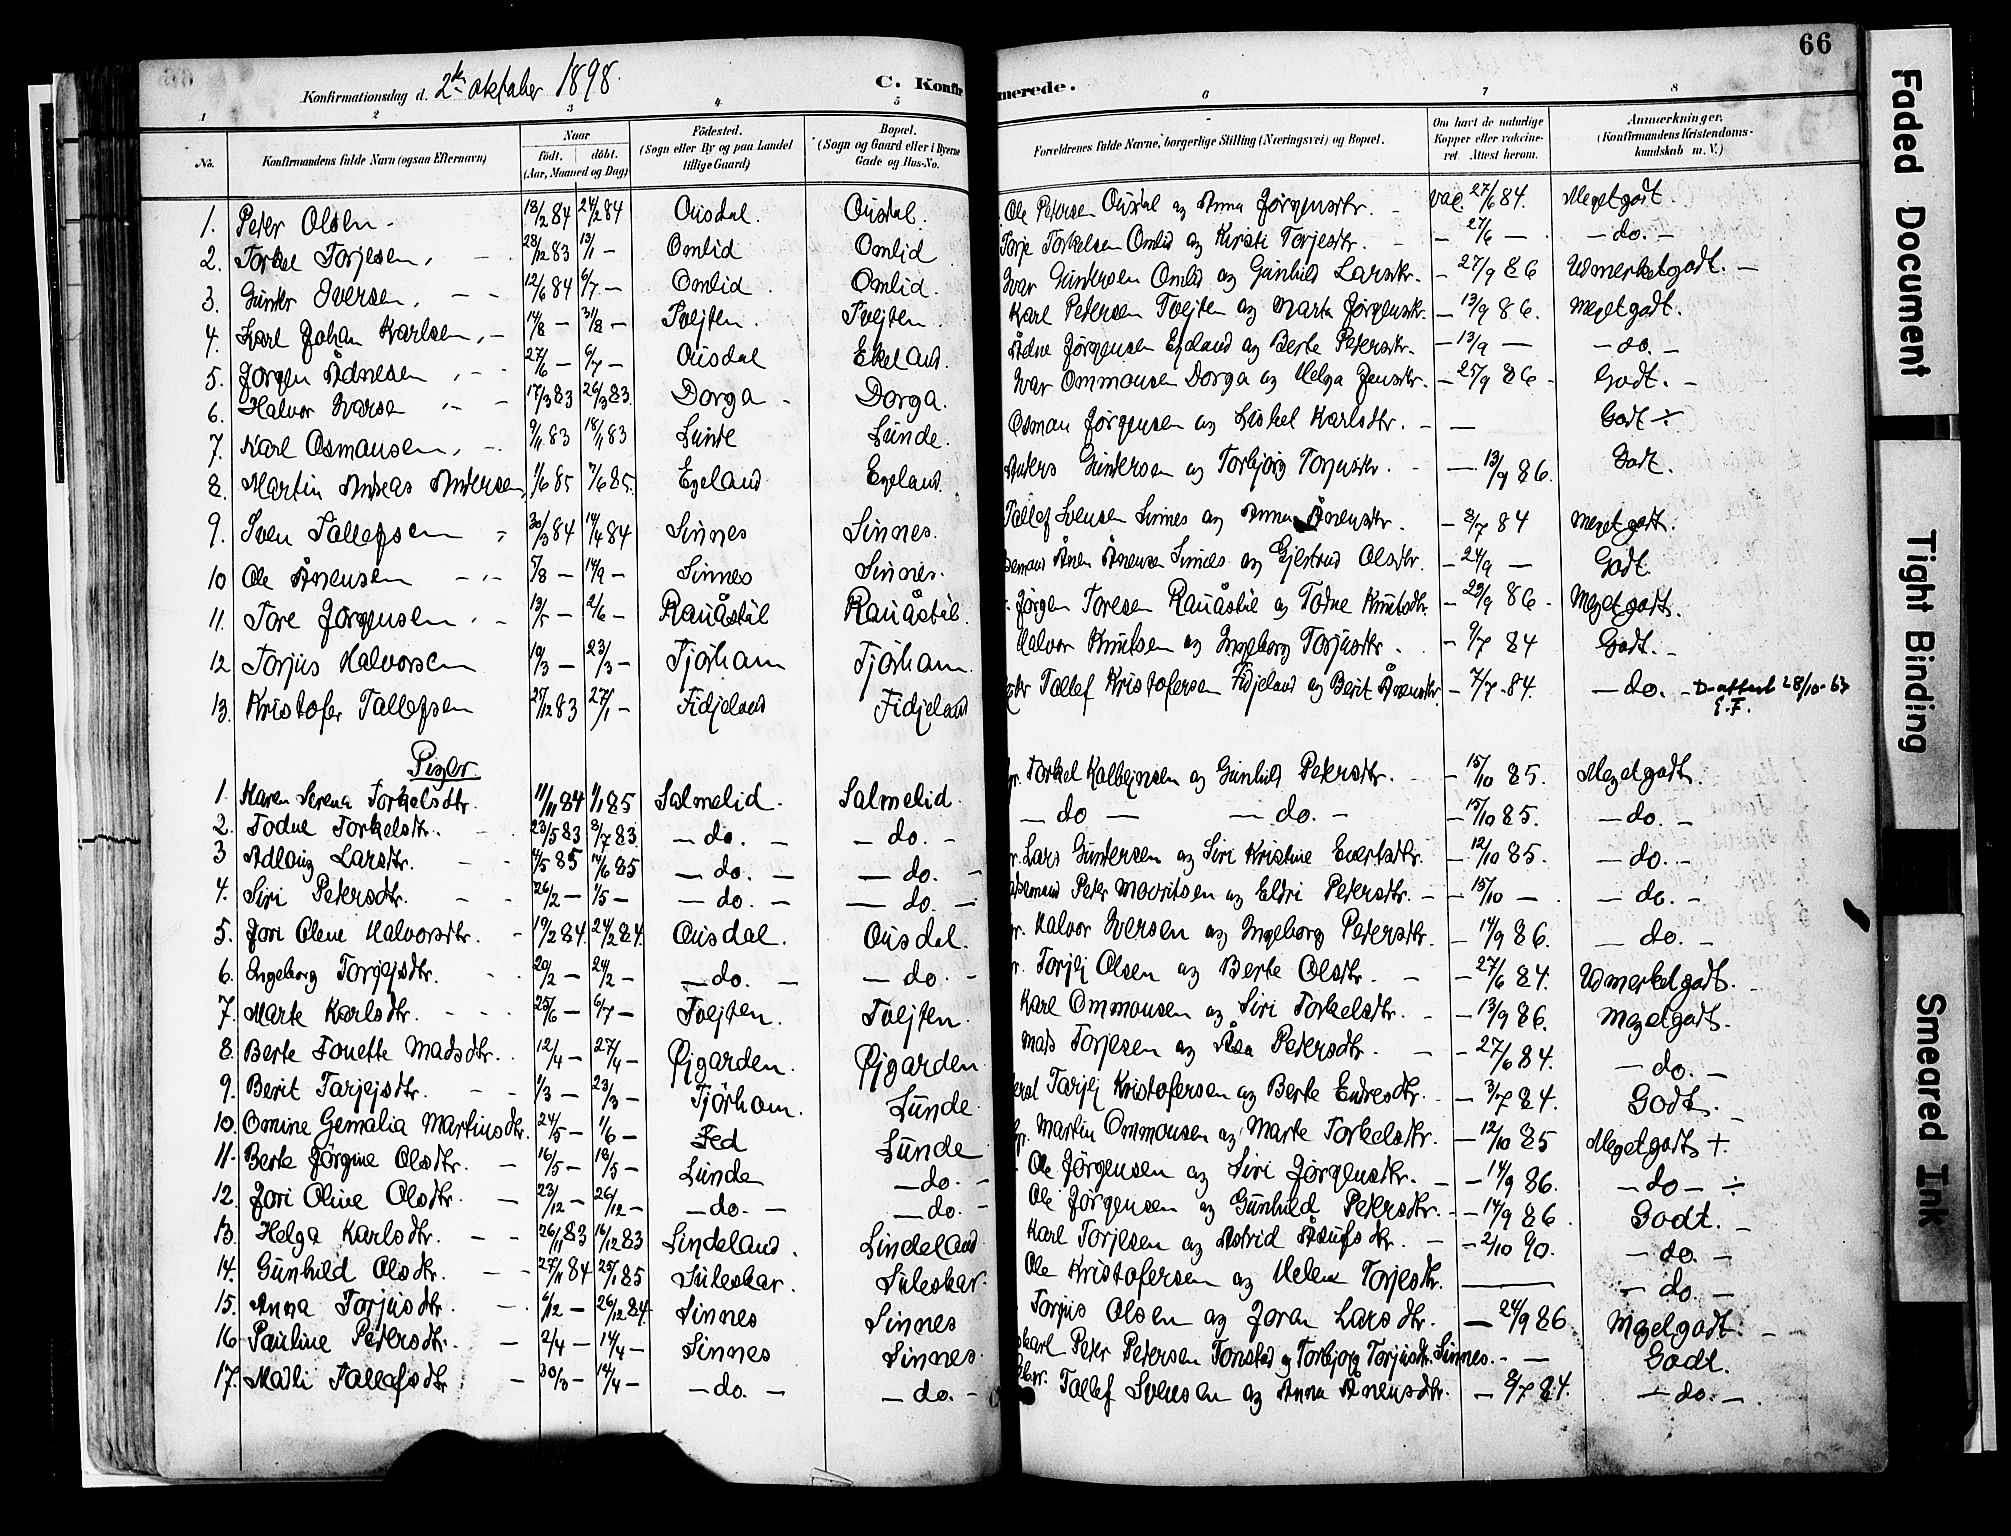 66
Konfirmationsdag d. 2den oktober 1898.
C. Konfirmerede.
1 2 3 4 5 6 7 8
No. Konfirmandens fulde Navn (ogsaa Efternavn) Naar født. døbt. (Aar, Maaned og Dag) Fødested. (Sogn eller By og paa Landet tillige Gaard) Bopæl. (Sogn og Gaard eller i Byerne Gade og Hus-No. Forældrenes fulde Navne, borgerlige Stilling (Næringsvei) og Bopæl. Om havt de naturlige Kopper eller vakcineret Attest herom. Anmærkninger. (Konfirmandens Kristendomskundskab m. V.)
1. Peter Olsen 13/2 84 24/2 84 Ousdal. Ousdal. Ole Petersen Ousdal og Anna Jørgensdtr. vac. 27/6 84. Megetgodt.
2. Torkel Torjesen 28/12 83 13/1 — Omlid Omlid Torje Torkelsen Omlid og Kirsti Torjesdtr. — 27/6 — — do. —
3. Gunder Iversen 12/6 84 6/7 — Omlid. Omlid. Ivar Gundersen Omlid og Gunhild Larsdtr. — 27/9 86 Udmerketgodt. —
4. Karl Johan Karlsen 14/8 — 31/8 — Tvejten. Tvejten. Karl Petersen Tvejten og Marta Jørgensdtr. — 13/9 86. Megetgodt.
5. Jørgen Ådnesen 27/6 — 6/7 — Ousdal Ekeland. Ådne Jørgensen Egeland og Berte Petersdtr. — 13/9 — — do. —
6. Halvor Ivarsen 17/3 83 26/3 83. Dorga Dorga. Ivar Ommonsen Dorga og Helga Jensdtr. — 25/9 86 Godt. —
7. Karl Osmonsen 9/11 83 18/11 83 Lunde Lunde. Osmon Jørgensen og Liskel Karlsdtr. — — Godt ÷
8. Martin Andreas Andersen 1/6 85 7/6 85. Egeland Egeland. Anders Gundersen og Torbjørg Torjusdtr. — 13/9 86. Godt.
9. Sven Tallefsen 30/3 84 14/4 84 Sinnes Sinnes. Tallef Svensen Sinnes og Anna Ånensdtr. — 8/7 84 Megetgodt.
10 Ole Ånensen 5/8 — 14/9 — Sinnes Sinnes. Ånen Ånensen Sinnes og Gjertrud Olsdtr. — 24/9 — Godt.
11. Tore Jørgensen 13/5 — 2/6 — Rauåstøl Rauåstøl. Jørgen Toresen Rauåstøl og Todne Knutsdtr. — 23/9 86. Megetgodt.
12 Torjus Halvorsen 19/3 — 23/3 — Tjørham Tjørham. Halvor Knutsen og Ingeborg Torjusdtr. — 9/7 84 Godt. —
13. Kristofer Tallefsen 25/12 83 27/1 — Fidjeland Fidjeland Tallef Kristofersen Fidjeland og Berit Ånensdtr. — 7/7 84. — do. — D-attest 28/10-63
E.F.
Piger.
1. Karen Serena Torkelsdtr. 11/11 84 1/1 85 Salmelid. Salmelid. Torkel Kolbejnsen og Gunhild Petersdtr. — 15/10 85. Megetgodt.
2. Todne Torkelsdtr. 23/5 83 8/7 83 — do. — — do. — — do — — do. — — 15/10 85. — do. —
3 Adlaug Larsdtr. 4/5 85 14/6 85 — do. — — do. — Lars Gundersen og Siri Kristine Evertsdtr. — 12/10 85. — do. —
4. Siri Petersdtr. 26/2 — 1/5 — — do. — — do. — Peter Mouritsen og Eldri Petersdtr. — 15/10 — — do. —
5. Jori Olene Halvorsdtr. 19/2 84. 24/2 84. Ousdal. Ousdal. Halvor Iversen og Ingeborg Petersdtr. — 14/9 86. — do. —
6. Ingeborg Torjejsdtr. 20/2 — 24/2 — — do. — — do. — Torjej Olsen og Berte Olsdtr. — 27/6 84. Udmerketgodt.
7. Marte Karlsdtr. 25/6 — 6/7 — Tvejten. Tvejten. Karl Ommonsen og Siri Torkelsdtr. — 13/9 86. Megetgodt.
8. Berte Tonette Madsdtr. 12/4 — 27/4 — Øjgarden. Øjgarden Mads Torjesen og Åsa Petersdtr. — 27/6 84. — do. —
9. Berit Tarjejsdtr. 1/3 — 23/3 — Tjørham. Lunde Tarjej Kristofersen og Berte Endresdtr. — 3/7 84. Godt. —
10. Omine Gemalia Martinsdtr. 24/5 — 1/6 — Fed Lunde Martin Ommonsen og Marte Torkelsdtr. — 12/10 85 Megetgodt +
11. Berte Jørgine Olsdtr. 16/5 — 18/5 — Lunde — do. — Ole Jørgensen og Siri Jørgensdtr. — 14/9 86. — do — ÷
12. Jori Oline Olsdtr. 23/12 — 26/12 — — do. — — do. — Ole Jørgensen og Gunhild Petersdtr. — 14/9 86. Godt. —
13. Helga Karlsdtr. 26/11 83 16/12 83 Lindeland. Lindeland Karl Torjesen og Astrid Åsufsdtr. — 2/10 90. — do. —
14. Gunhild Olsdtr. 27/11 84 25/1 85 Suleskar Suleskar. Ole Kristofersen og Helene Torjesdtr. — — do. —
15. Anna Torjusdtr. 6/12 — 26/12 84. Sinnes Sinnes Torjus Olsen og Joran Larsdtr. — 24/9 86. Megetgodt. —
16 Pauline Petersdtr. 2/4 — 14/4 — Sinnes Sinnes. Peter Petersen Tonstad og Torbjorg Torjusdtr. Sinnes. — — Godt.
17. Malli Tallefsdtr. 30/3 — 14/4 — — do. — — do. — Tallef Svensen og Anna Ånensdtr. — 8/7 84. — do. —
Faded Document
Tight Binding
Smeared Ink